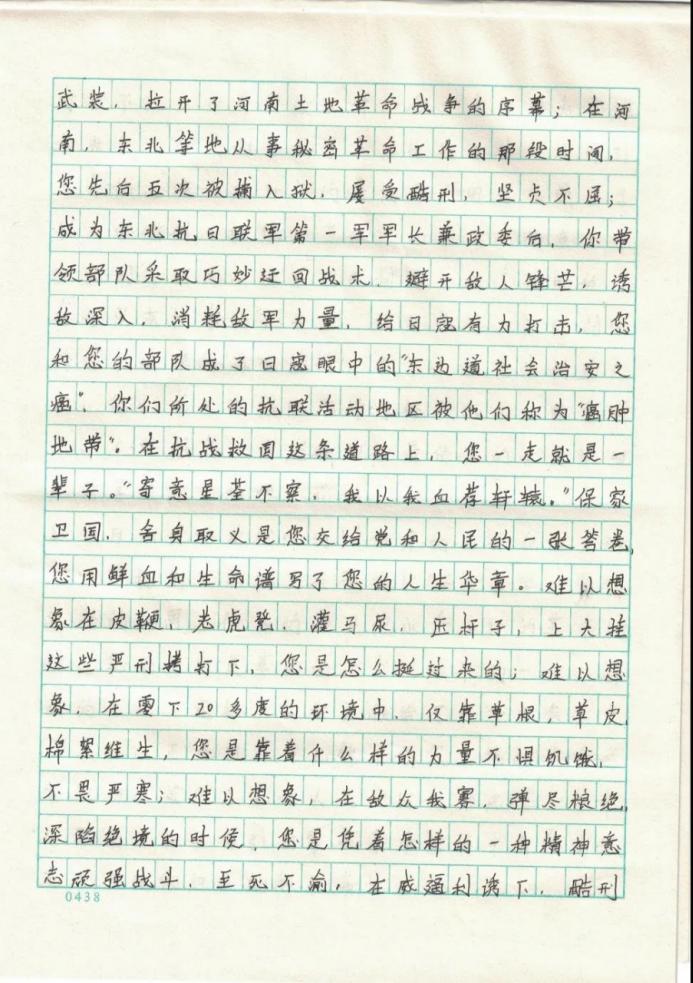 武装，拉开了河南土地革命战争的序幕；在河
南，东北等地从事秘密革命工作的那段时间，
您先后五次被捕入狱，屡受酷刑，坚贞不屈；
成为东北抗日联军第一军军长兼政委后，你带
领部队采取巧妙迂回战术，避开敌人锋芒，诱
敌深入，消耗敌军力量，给日寇有力打击，您
和您的部队成了日寇眼中的“东边道社会治安之
癌”，你们所处的抗联活动地区被他们称为“癌肿
地带”。在抗战救国这条道路上，您一走就是一
辈子。“寄意星荃不察，我以我血荐轩辕。”保家
卫国，舍身取义是您交给党和人民的一张答卷，
您用鲜血和生命谱写了您的人生华章。难以想
象在皮鞭，老虎凳，灌马尿，压杆子，上大挂
这些严刑拷打下，您是怎么挺过来的；难以想
象，在零下20多度的环境中，仅靠草根，草皮，
棉絮维生，您是靠着什么样的力量不惧饥饿，
不畏严寒；难以想象，在敌众我寡，弹尽粮绝，
深陷绝境的时候，您是凭着怎样的一种精神意
志顽强战斗，至死不渝，在威逼利诱下，酷刑
0438